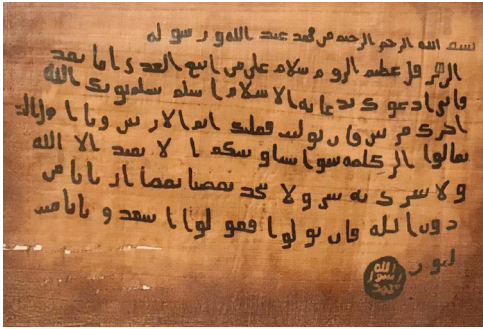 بسم الله الرحمن الرحيم من محمد عبد الله ورسوله
الى هرقل عظيم الروم سلام على من اتبع الهدى اما بعد
فانى ادعوك بدعاية الاسلام اسلم تسلم يوتك الله
اجرك مرتين فان توليت فعليك اثم الاريسين ويا
تعالوا الى كلمة سوا بيننا وبينكم ا لا نعبد الا الله
ولا نشرك به ولا يتخذ بعضنا بعضا اربابا من
دون الله فان تولوا فقولوا اشهدوا بانا مس
لمون
الله
رسول
محمد